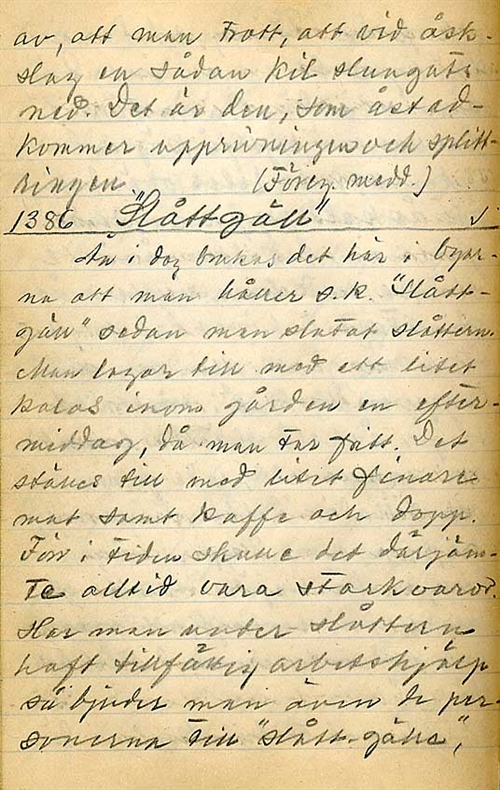 av, att man trott, att vid åsk-
slag en sådan kil slungats
ned. Det är den, som åstad-
kommer upprivningen och splitt-
ringen. (Föreg. medd.)
1386 "Slåttgäll" √
Än i dag brukas det här i byar-
na att man håller s.k. "slått-
gäll" sedan man slutat slåttern.
Man lagar till med ett litet
kalas inom gården en efter-
middag, då man tar fritt. Det
ställes till med litet finare
mat samt kaffe och dopp.
Förr i tiden skulle det därjäm-
te alltid vara starkvaror.
Har man under slåttern
haft tillfällig arbetshjälp
så bjuder man även de per-
sonerna till "slått-gälle",